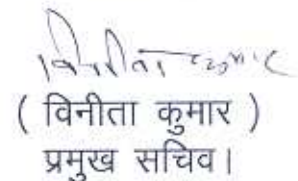 विनीता कुमार
( विनीता कुमार )
प्रमुख सचिव।